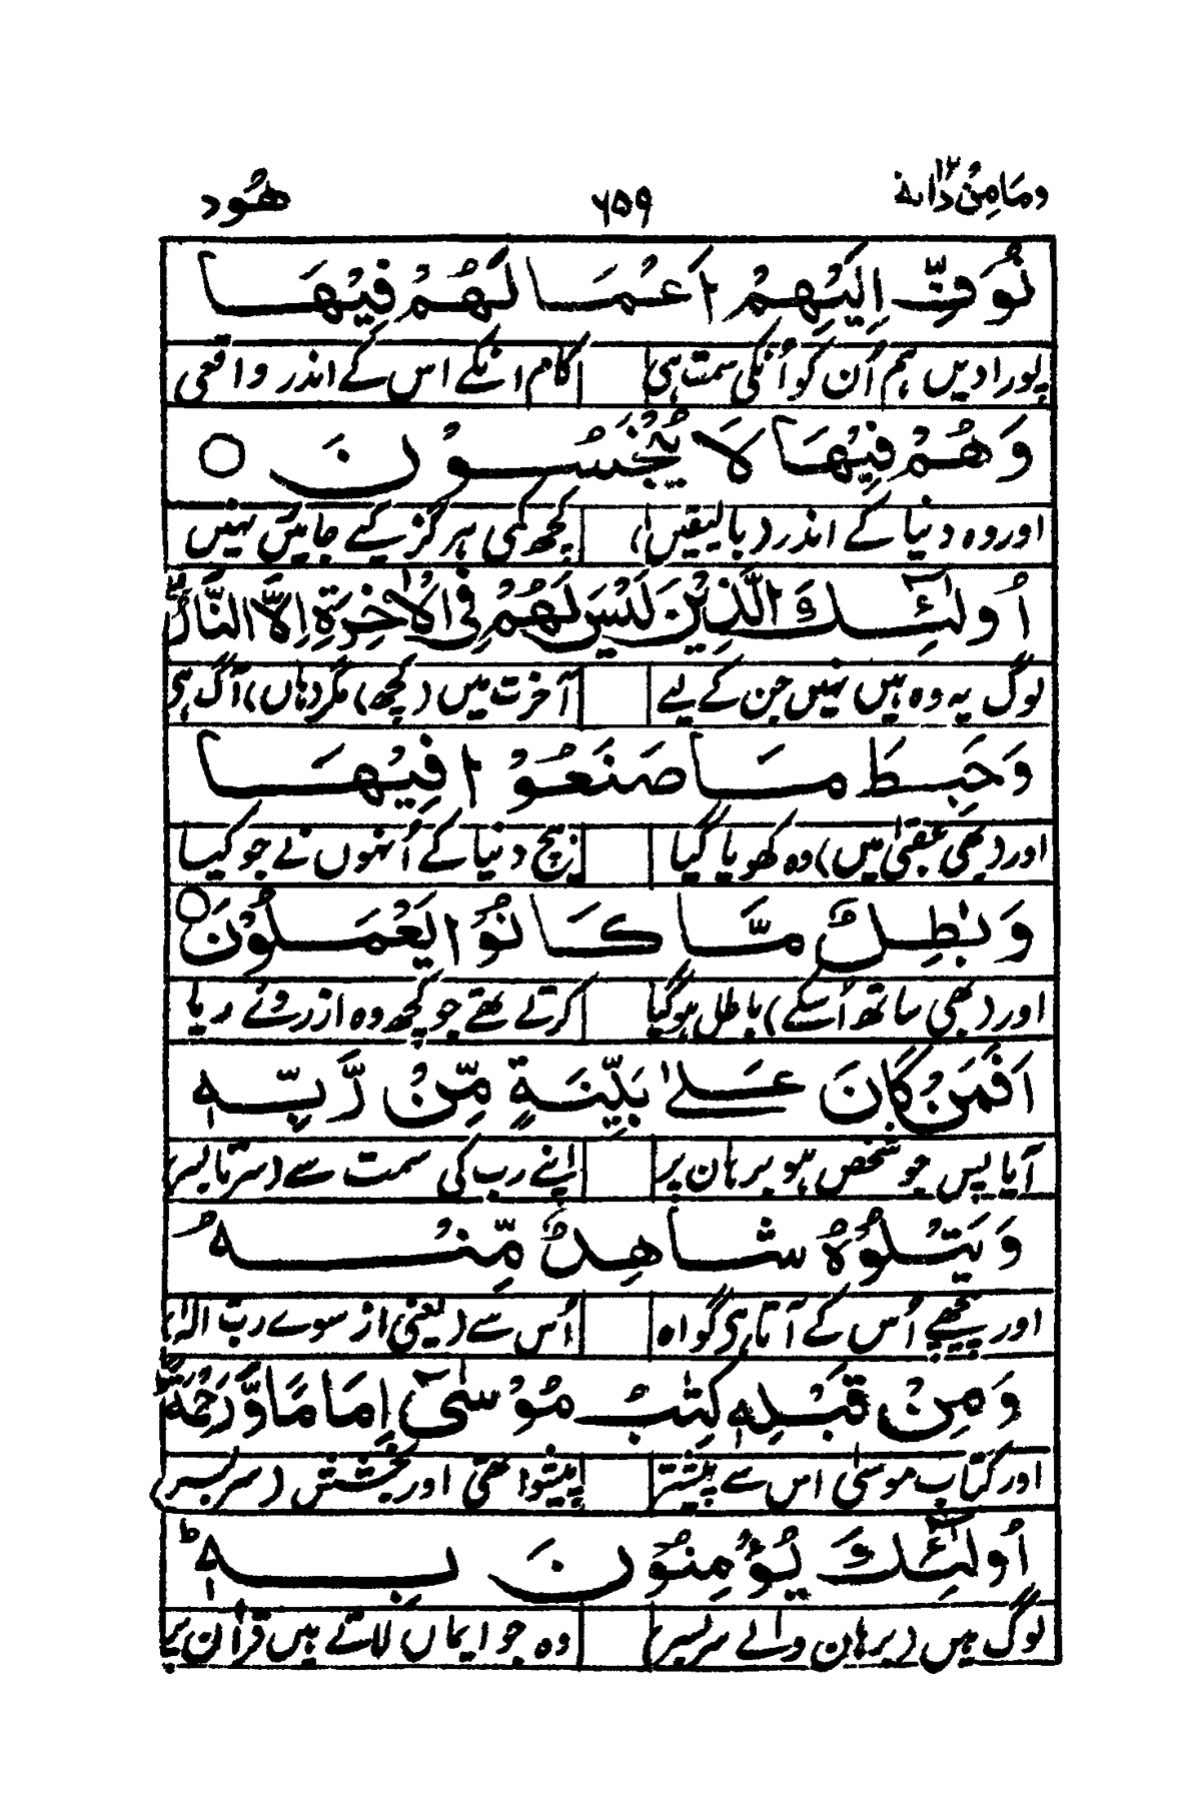 ومامن دابة ١٢ ٦٥٩ هُود
نُوَفِّ اِلَيْهِمْ اَعْمَالَهُمْ فِيْهَا
پورا دیں ہم اُن کو اُنکی سمت ہی کام انکے اس کے اندر واقعی
وَهُمْ فِيْهَا لَا يُبْخَسُوْنَ ○
اور وہ دنیا کے اندر (بالیقیں) کچھ کمی ہرگز کیے جائیں نہیں
اُولٰٓئِكَ الَّذِيْنَ لَيْسَ لَهُمْ فِى الْاٰخِرَةِ اِلَّا النَّارُ ۖ
لوگ یہ وہ ہیں نہیں جن کے لیے آخرت میں (کچھ) مگر (ہاں) آگ ہی
وَحَبِطَ مَا صَنَعُوْا فِيْهَا
اور (بھی عقبیٰ میں) وہ کھویا گیا بیچ دنیا کے اُنہوں نے جو کیا
وَبٰطِلٌ مَّا كَانُوْا يَعْمَلُوْنَ ○
اور (بھی ساتھ اُسکے) باطل ہو گیا کرتے تھے جو کچھ وہ از روئے ریا
اَفَمَنْ كَانَ عَلٰى بَيِّنَةٍ مِّنْ رَّبِّهٖ
آیا پس جو شخص ہو برہان پر اپنے رب کی سمت سے (سرتابسر
وَيَتْلُوْهُ شَاهِدٌ مِّنْهُ
اور پیچھے اُس کے آتا ہی گواہ اُس سے (یعنی از سوے رب الٰہ)
وَمِنْ قَبْلِهٖ كِتٰبُ مُوْسٰٓى اِمَامًا وَّرَحْمَةً ۗ
اور کتاب موسیٰ اس سے پیشتر پیشوا تھی اور بخشش (سربسر)
اُولٰٓئِكَ يُؤْمِنُوْنَ بِهٖ ۗ
لوگ ہیں (برہان والے سربسر) وہ جو ایماں لاتے ہیں قرآن پر